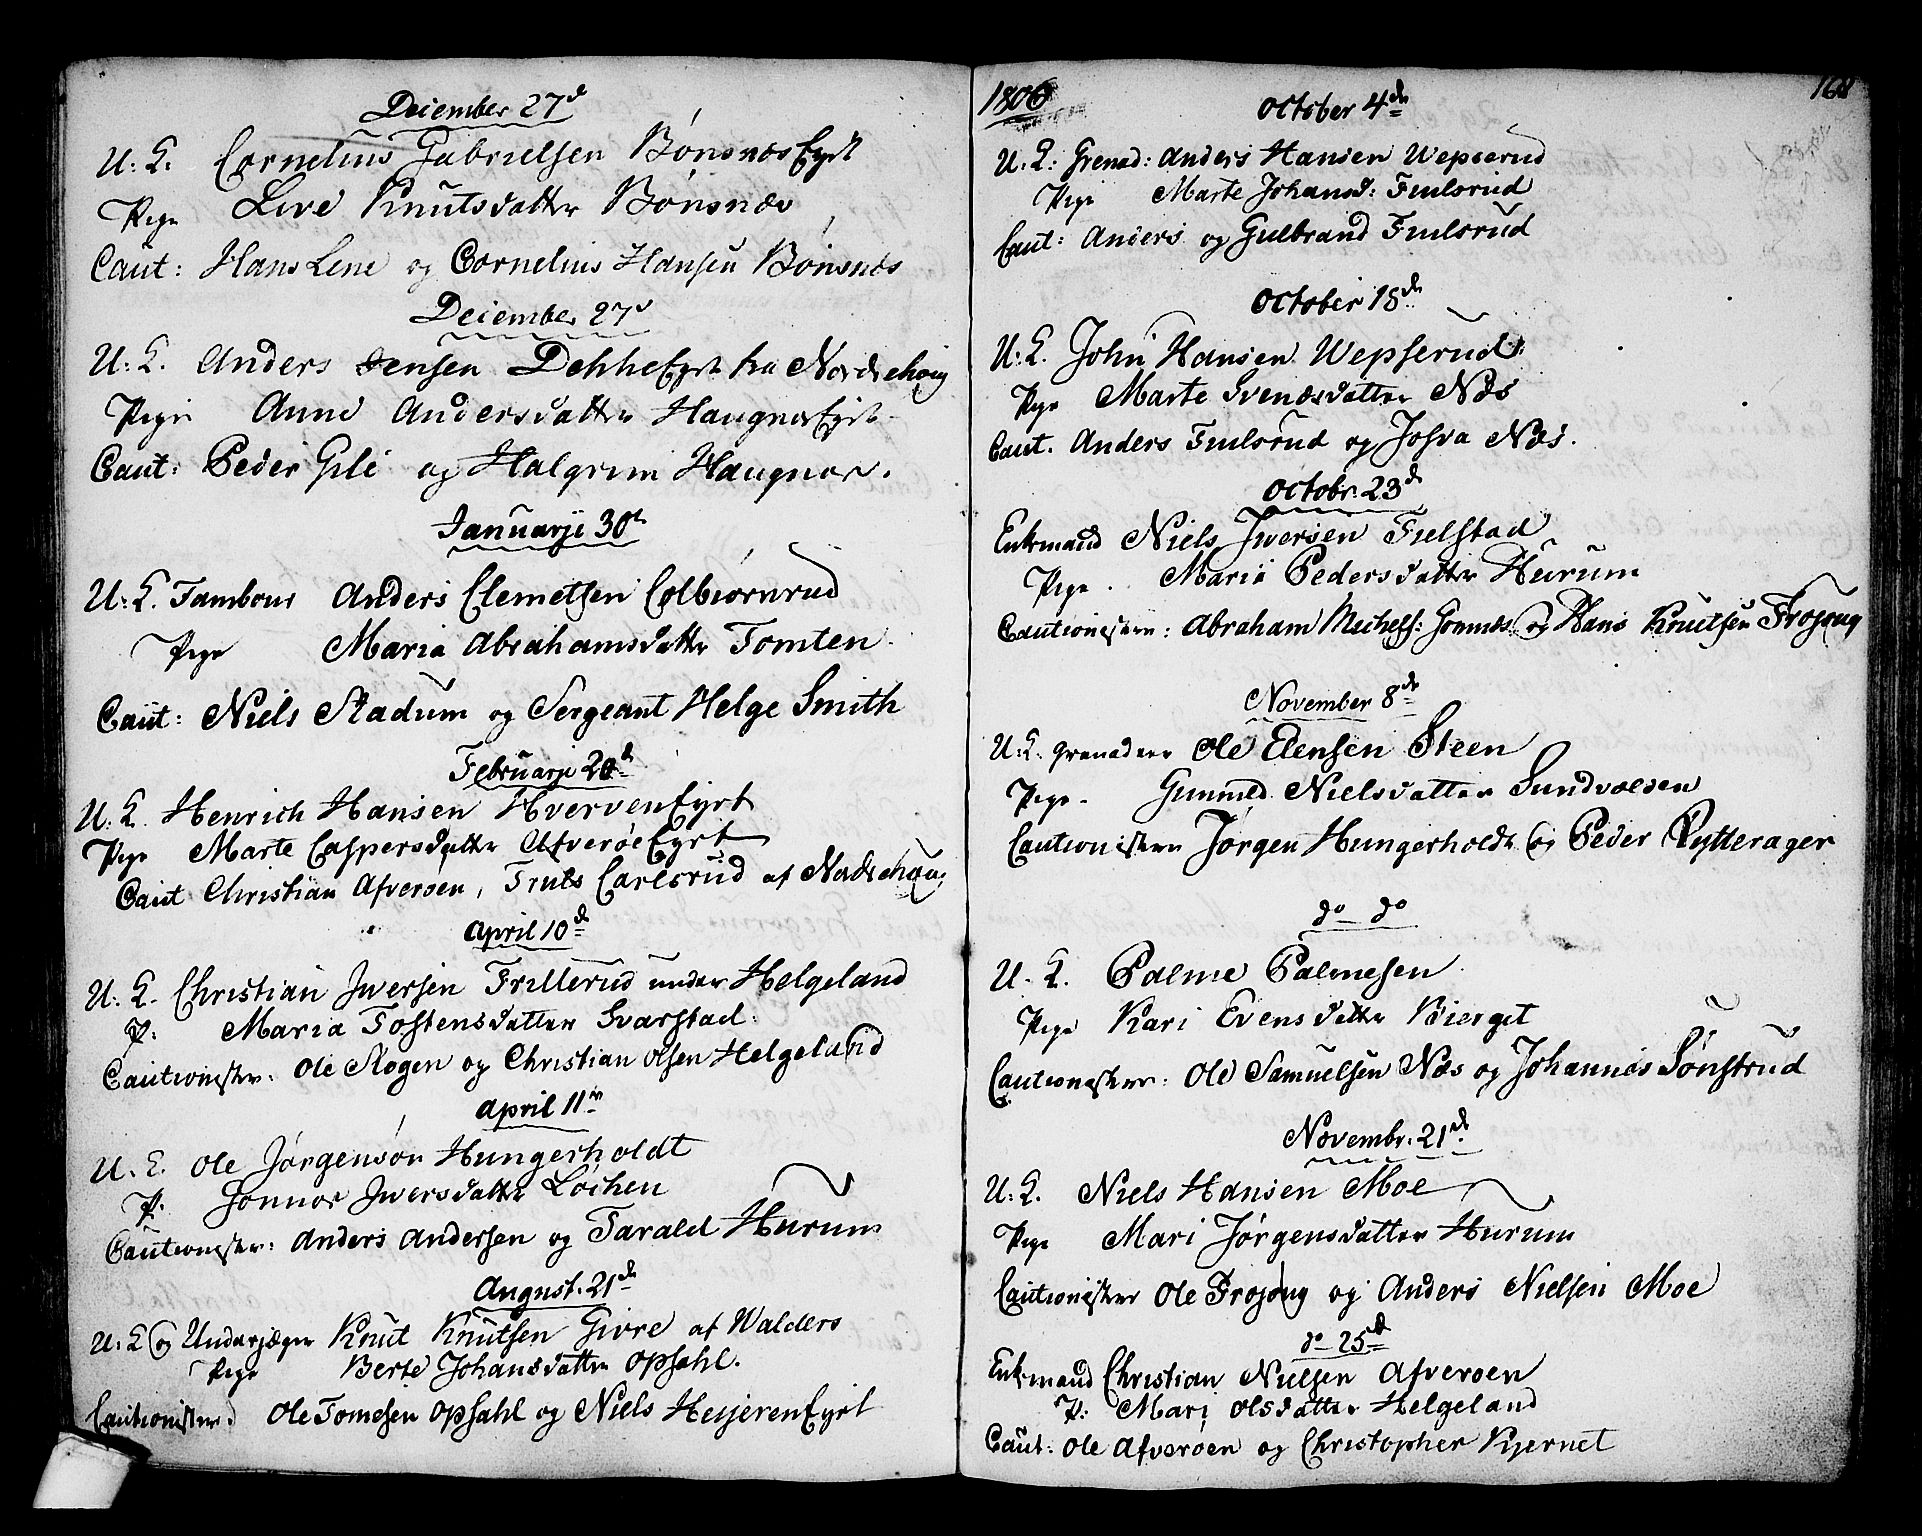 December 27d
U: K. Cornelius Gabrielsen Bönsnæs Eyet
Pige Live Knutsdatter Bönsnæs
Caut: Hans Lene og Cornelius Hansen Bönsnæs
December 27d
U: K. Anders Jensen Dehlie Eyet fra Norderhoug
Pige Anne Andersdatter Haugnor Eyet
Caut: Peder Gile og Halgrim Haugnor.
Januarji 30te
U: K. Tambour Anders Clemetsen Colbiörnrud
Pige Maria Abrahamsdatter Tomten
Caut: Niels Stadum og Sergeant Helge Smith
Februarji 20d
U: K. Henrich Hansen Hverven Eyet
Pige Marte Caspersdatter Afveröe Eyet
Caut Christian Afveröen, Truls Carlsrud af Norderhoug
April 10d
U: K. Christian Iversen Trillerud under Helgeland
P: Maria Tostensdatter Svarstad.
Cautionister: Ole Skogen og Christian Olsen Helgeland
April 11te
U. K. Ole Jörgensön Hungerholdt
P. Gonnor Iversdatter Löchen
Cautionister: Anders Andersen og Tarald Hurum
August. 21de
U: K og Underjæger Knut Knutsen Givre af Walders
Pige Berte Johansdatter Opsahl.
Cautionister: Ole Tomesen Opsahl og Niels Heijeren Eyet
1806
168
October 4de
U. K: Grenad: Anders Hansen Wepserud
Pige Marte Johansd: Fmlsrud
Caut: Anders og Gulbrand Fmlsrud
October 18de
U: K. John Hansen Wepserud:
Pige Marte Svensdatter Næs
Caut. Anders Fmlsrud og Josva Næs.
Octobr. 23de
Enkemand Niels Iwersen Fielstad
Pige. Maria Pedersdatter Hurum
Cautionister: Abraham Michels: Gommæs og Hans Knutsen Frøjoug
November 8de
U: K. Grenadeer Ole Eensen Steen
Pige. Gunnild Nielsdatter Sundvolden
Cautionister Jörgen Hungerholdt og Peder Rytterager
do do
U. K. Palme Palmesen
Pige Kari Evensdatter Bierget
Cautionister: Ole Samuelsen Næs og Johannes Sönstrud
Novembr. 21de
U: K. Niels Hansen Moe
Pige Mari Jörgensdatter Hurum
Cautionister Ole Frøjoug og Anders Nielsen Moe
do 25de
Enkemand Christian Nielsen Afveroen
P: Mari Olsdatter Helgeland
Caut: Ole Afveröen og Christopher Kjernet